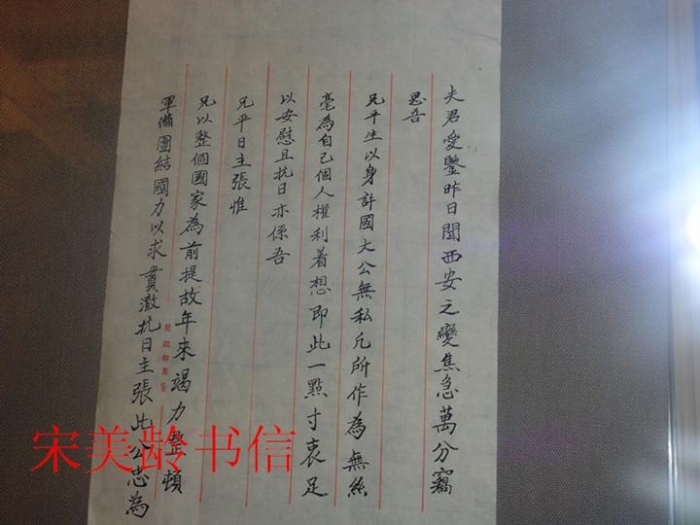 夫君愛鑒昨日聞西安之變焦急萬分竊
思吾
兄平生以身許國大公無私凡所作為無絲
毫為自己個人權利着想即此一點寸衷足
以安慰且抗日亦係吾
兄平日主張惟
兄以整個國家為前提故年來竭力整頓
軍備團結國力以求貫澈抗日主張此公忠為
宋美龄书信